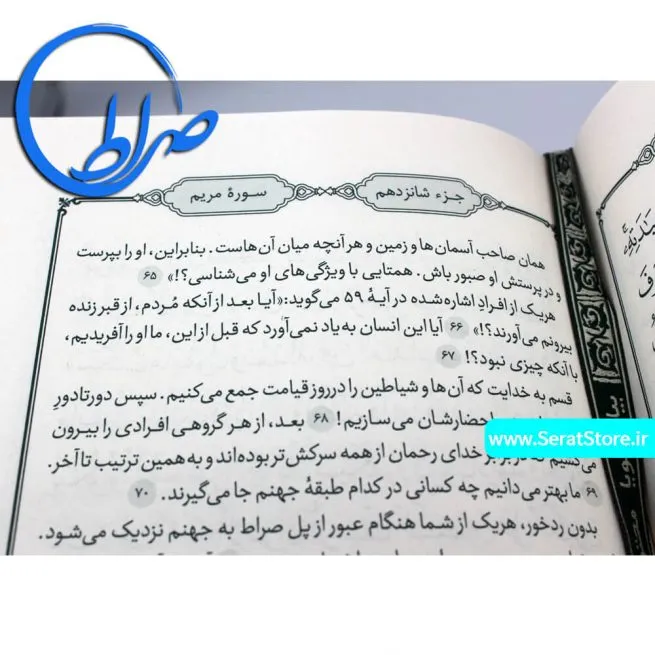 صراط
جزء شانزدهم
سورهٔ مریم
همان صاحب آسمان‌ها و زمین و هر آنچه میان آن‌هاست. بنابراین، او را بپرست
و در پرستش او صبور باش. همتایی با ویژگی‌های او می‌شناسی؟!» ۶۵
هریک از افرادِ اشاره‌شده در آیهٔ ۵۹ می‌گوید: «آیا بعد از آنکه مُردم، از قبر زنده
بیرونم می‌آورند؟!» ۶۶ آیا این انسان به یاد نمی‌آورد که قبل از این، ما او را آفریدیم،
با آنکه چیزی نبود؟! ۶۷
قسم به خدایت که آن‌ها و شیاطین را در روز قیامت جمع می‌کنیم. سپس دورتادورِ
احضارشان می‌سازیم! ۶۸ بعد، از هر گروهی افرادی را بیرون
می‌کشیم که در برابر خدای رحمان از همه سرکش‌تر بوده‌اند و به همین ترتیب تا آخر.
۶۹ ما بهتر می‌دانیم چه کسانی در کدام طبقهٔ جهنم جا می‌گیرند. ۷۰
بدون ردخور، هریک از شما هنگام عبور از پل صراط به جهنم نزدیک می‌شود.
www.SeratStore.ir